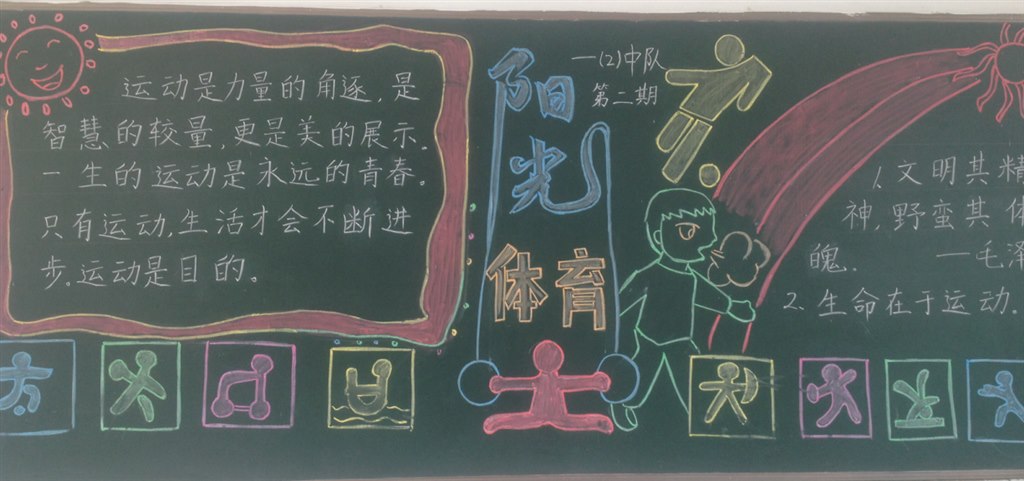 运动是力量的角逐，是
智慧的较量，更是美的展示。
一生的运动是永远的青春。
只有运动，生活才会不断进
步。运动是目的。
阳光
体育
一(2)中队
第二期
1、文明其精
神，野蛮其体
魄．
——毛泽
2、生命在于运动．